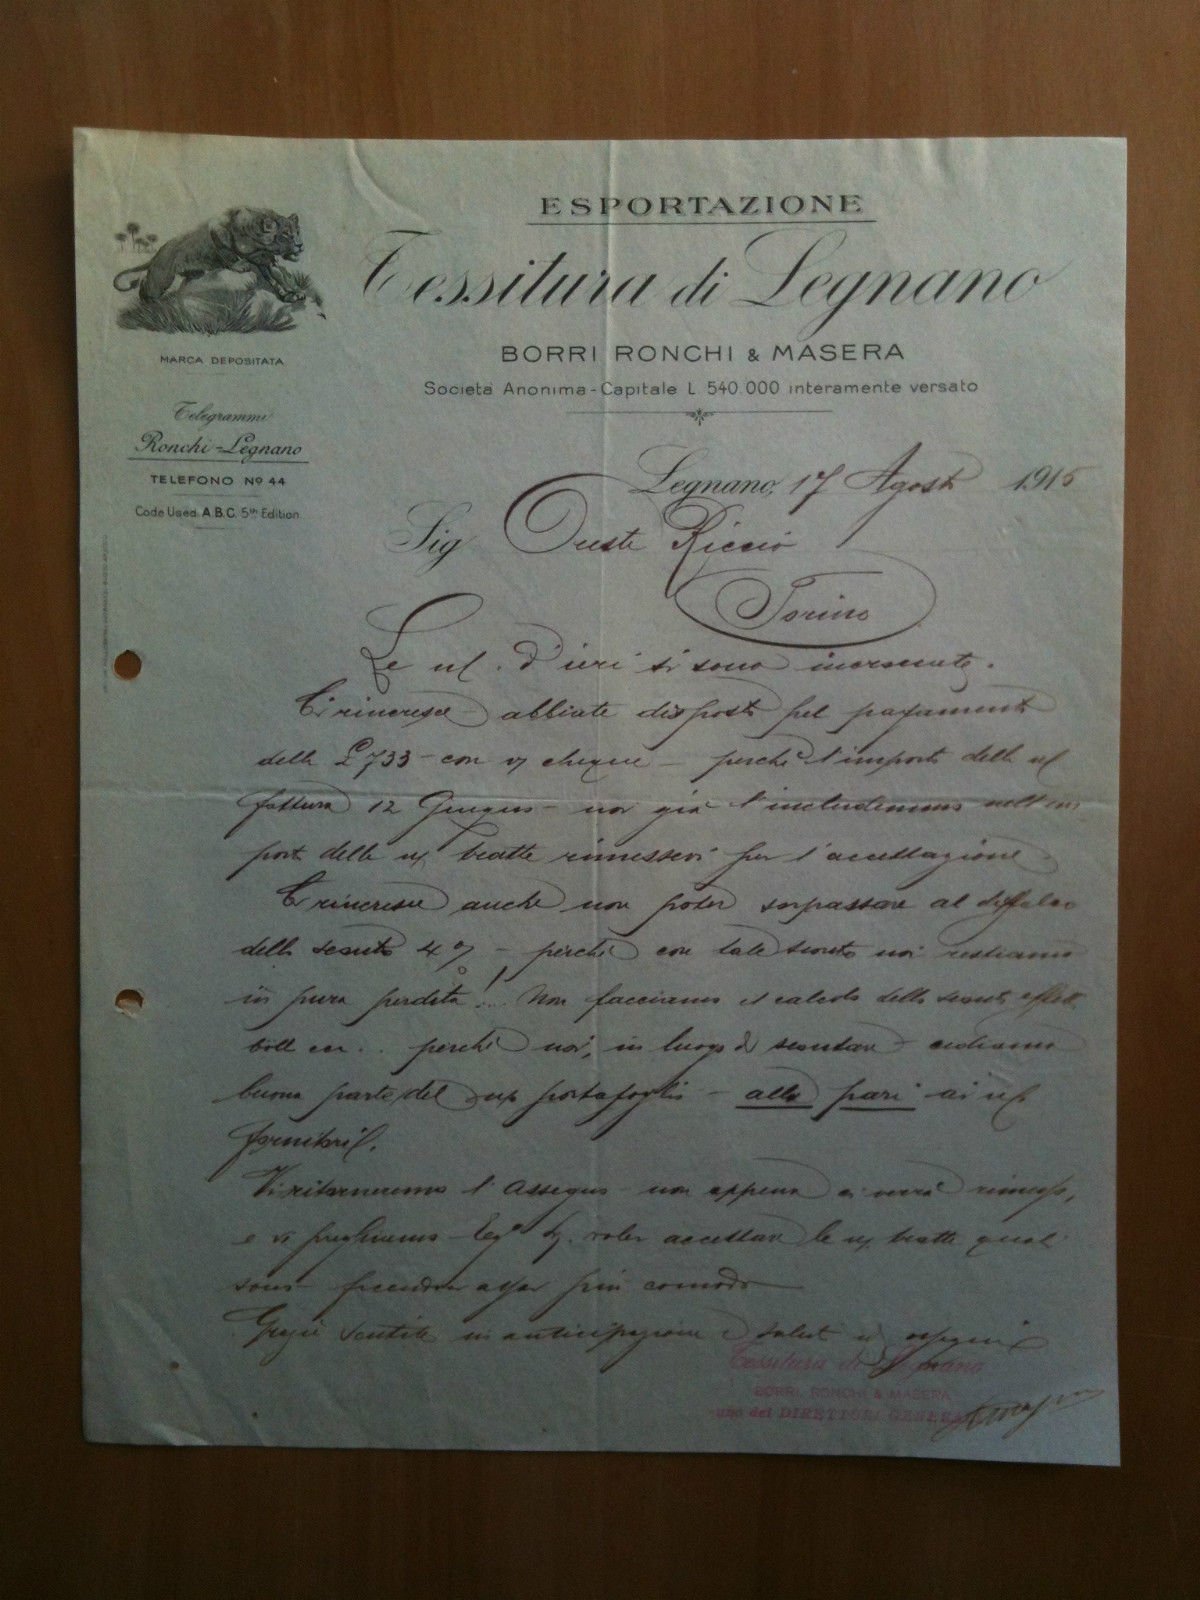 ESPORTAZIONE
Tessitura di Legnano
BORRI RONCHI & MASERA
Società Anonima - Capitale L. 540.000 interamente versato
MARCA DEPOSITATA
Telegrammi
Ronchi=Legnano
TELEFONO No 44
Code Used A.B.C. 5th Edition
Legnano, 17 Agosto 1915
Sig Oreste Riccio
Torino
Le d'ieri si sono incrociate.
Ci rincresce abbiate disposto pel pagamento
delle £ 733 - con cheque - perchè l'importo della
fattura 12 Giugno - noi già l'includemmo
delle tratte rimessevi per l'accettazione
Ci rincresce anche non poter sorpassare al diffalco
dello sconto 4% - perchè con tale sconto noi restiamo
in pura perdita!... Non facciamo il calcolo dello sconto
boll ecc.. perchè noi, in luogo di scontare - cediamo
buona parte del portafoglio - alla pari ai
fornitori.
Vi ritorneremo l'assegno - non appena ci verrà rimesso,
e vi preghiamo voler accettare le tratte
più comodo
Grazie sentite in anticipazione e saluti
Tessitura di Legnano
BORRI, RONCHI & MASERA
uno dei DIRETTORI GENERALI